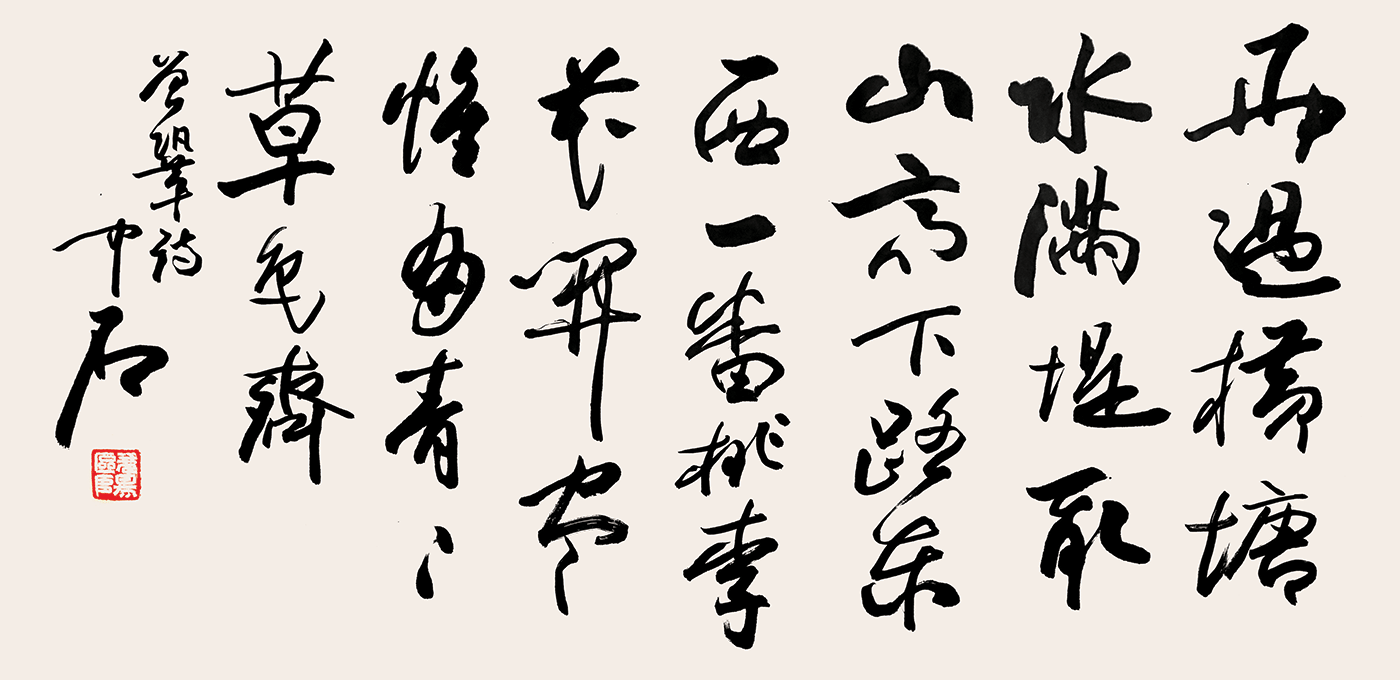 雨過橫塘
水滿堤亂
山高下路東
西一番桃李
花開盡
惟有青〻
草色齊
曾鞏詩
中石